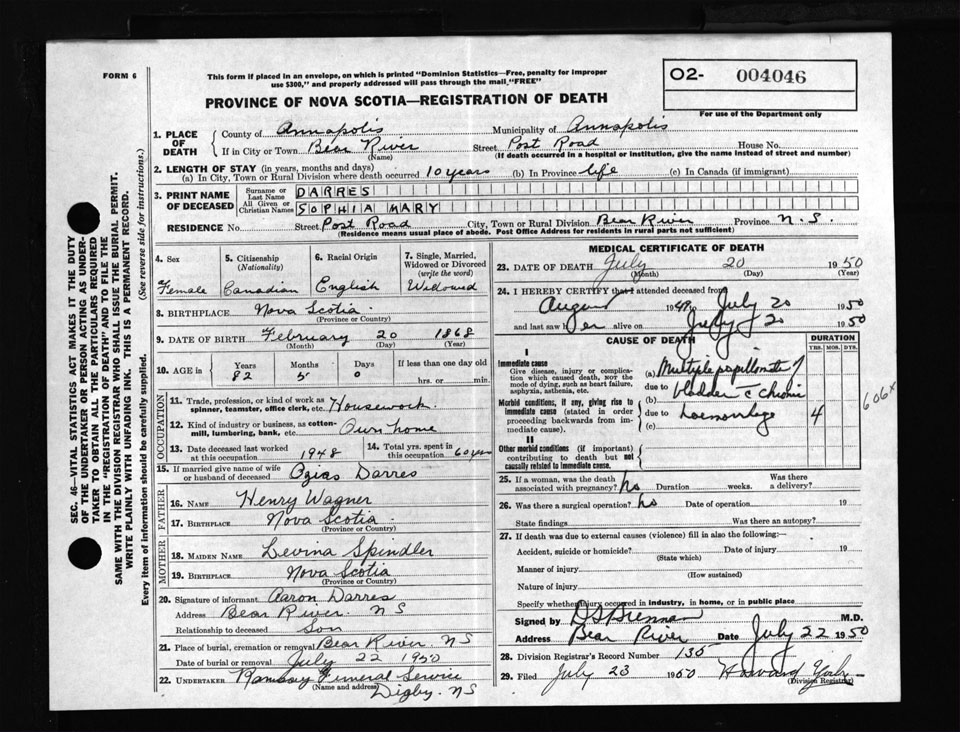 FORM 6
This form if placed in an envelope, on which is printed "Dominion Statistics—Free, penalty for improper
use $300," and properly addressed will pass through the mail "FREE"
PROVINCE OF NOVA SCOTIA—REGISTRATION OF DEATH
O2- 004046
For use of the Department only
SEC. 46—VITAL STATISTICS ACT MAKES IT THE DUTY
OF THE UNDERTAKER OR PERSON ACTING AS UNDER-
TAKER TO OBTAIN ALL THE PARTICULARS REQUIRED
IN THE "REGISTRATION OF DEATH" AND TO FILE THE
SAME WITH THE DIVISION REGISTRAR WHO SHALL ISSUE THE BURIAL PERMIT.
WRITE PLAINLY WITH UNFADING INK. THIS IS A PERMANENT RECORD.
Every item of information should be carefully supplied. (See reverse side for instructions.)
1. PLACE OF DEATH
County of Annapolis Municipality of Annapolis
If in City or Town Bear River Street Post Road House No.
(Name) (If death occurred in a hospital or institution, give the name instead of street and number)
2. LENGTH OF STAY (in years, months and days)
(a) In City, Town or Rural Division where death occurred 10 years (b) In Province life (c) In Canada (if immigrant)
3. PRINT NAME OF DECEASED
Surname or Last Name DARRES
All Given or Christian Names SOPHIA MARY
RESIDENCE No. Street Post Road City, Town or Rural Division Bear River Province N.S.
(Residence means usual place of abode. Post Office Address for residents in rural parts not sufficient)
4. Sex Female
5. Citizenship (Nationality) Canadian
6. Racial Origin English
7. Single, Married, Widowed or Divorced (write the word) Widowed
8. BIRTHPLACE Nova Scotia
(Province or Country)
9. DATE OF BIRTH February 20 1868
(Month) (Day) (Year)
10. AGE in Years Months Days If less than one day old
82 5 0 hrs. or min.
OCCUPATION
11. Trade, profession, or kind of work as
spinner, teamster, office clerk, etc. Housework.
12. Kind of industry or business, as cotton-
mill, lumbering, bank, etc. Own home
13. Date deceased last worked at this occupation 1948
14. Total yrs. spent in this occupation 60 years
15. If married give name of wife
or husband of deceased Ozias Darres
FATHER
16. NAME Henry Wagner
17. BIRTHPLACE Nova Scotia
(Province or Country)
MOTHER
18. MAIDEN NAME Levina Spindler
19. BIRTHPLACE Nova Scotia
(Province or Country)
20. Signature of informant Aaron Darres
Address Bear River. N S
Relationship to deceased Son
21. Place of burial, cremation or removal Bear River. NS
Date of burial or removal July 22 1950
22. UNDERTAKER Ramsay Funeral Service
(Name and address) Digby. NS
MEDICAL CERTIFICATE OF DEATH
23. DATE OF DEATH July 20 1950
(Month) (Day) (Year)
24. I HEREBY CERTIFY that I attended deceased from
July 20 1950
and last saw her alive on July 20 1950
CAUSE OF DEATH DURATION
YRS. MOS. DYS.
I
Immediate cause
Give disease, injury or complica-
tion which caused death, not the
mode of dying, such as heart failure,
asphyxia, asthenia, etc.
(a) Multiple papillomata of
due to
(b) bladder c̄ chronic
Morbid conditions, if any, giving rise to
immediate cause (stated in order
proceeding backwards from im-
mediate cause).
due to haemorrhage 4
(c)
606x
II
Other morbid conditions (if important)
contributing to death but not
causally related to immediate cause.
25. If a woman, was the death Was there
associated with pregnancy? no Duration weeks. a delivery?
26. Was there a surgical operation? no Date of operation 19
State findings Was there an autopsy?
27. If death was due to external causes (violence) fill in also the following:
Accident, suicide or homicide? Date of injury 19
(State which)
Manner of injury
(How sustained)
Nature of injury
Specify whether injury occurred in industry, in home, or in public place
Signed by Brennan M.D.
Address Bear River Date July 22 1950
28. Division Registrar's Record Number 135
29. Filed July 23 1950 Howard
(Division Registrar)